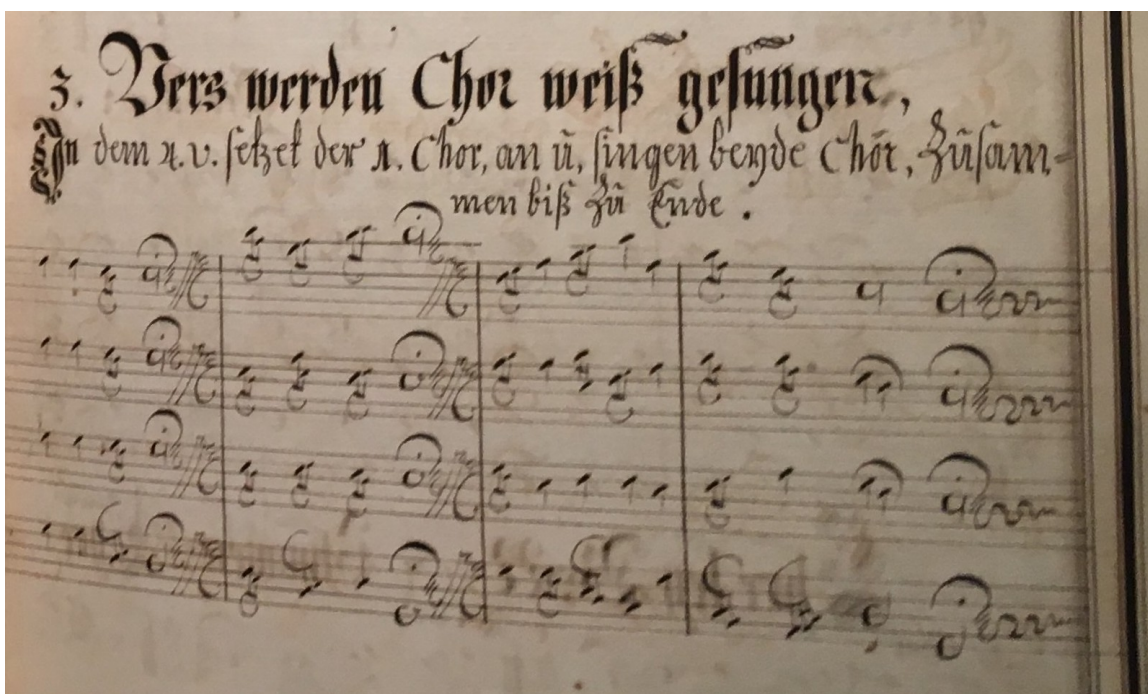 3. Vers werden Chor weiß gesungen,
In dem 4. v. setzet der 1. Chor, an ū, singen beyde Chör, Zusam-
men biß Zu Ende.